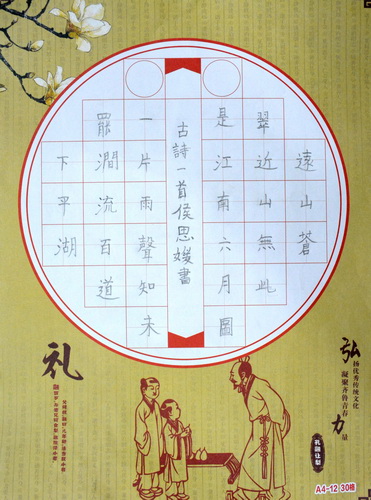 遠山蒼
翠近山無此
是江南六月圖
古詩一首侯思書
一片雨聲知未
罷澗流百道
下平湖
弘扬优秀传统文化
凝聚齐鲁青春力量
孔融让梨
礼
A4-12 30格